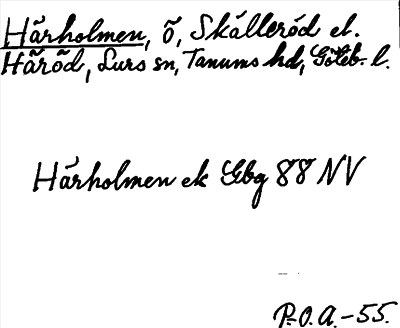 Härholmen, ö, Skälleröd el.
Häröd, Lurs sn, Tanums hd, Göteb. l.
Härholmen ek Gbg 88 NV
P.O.A.-55.